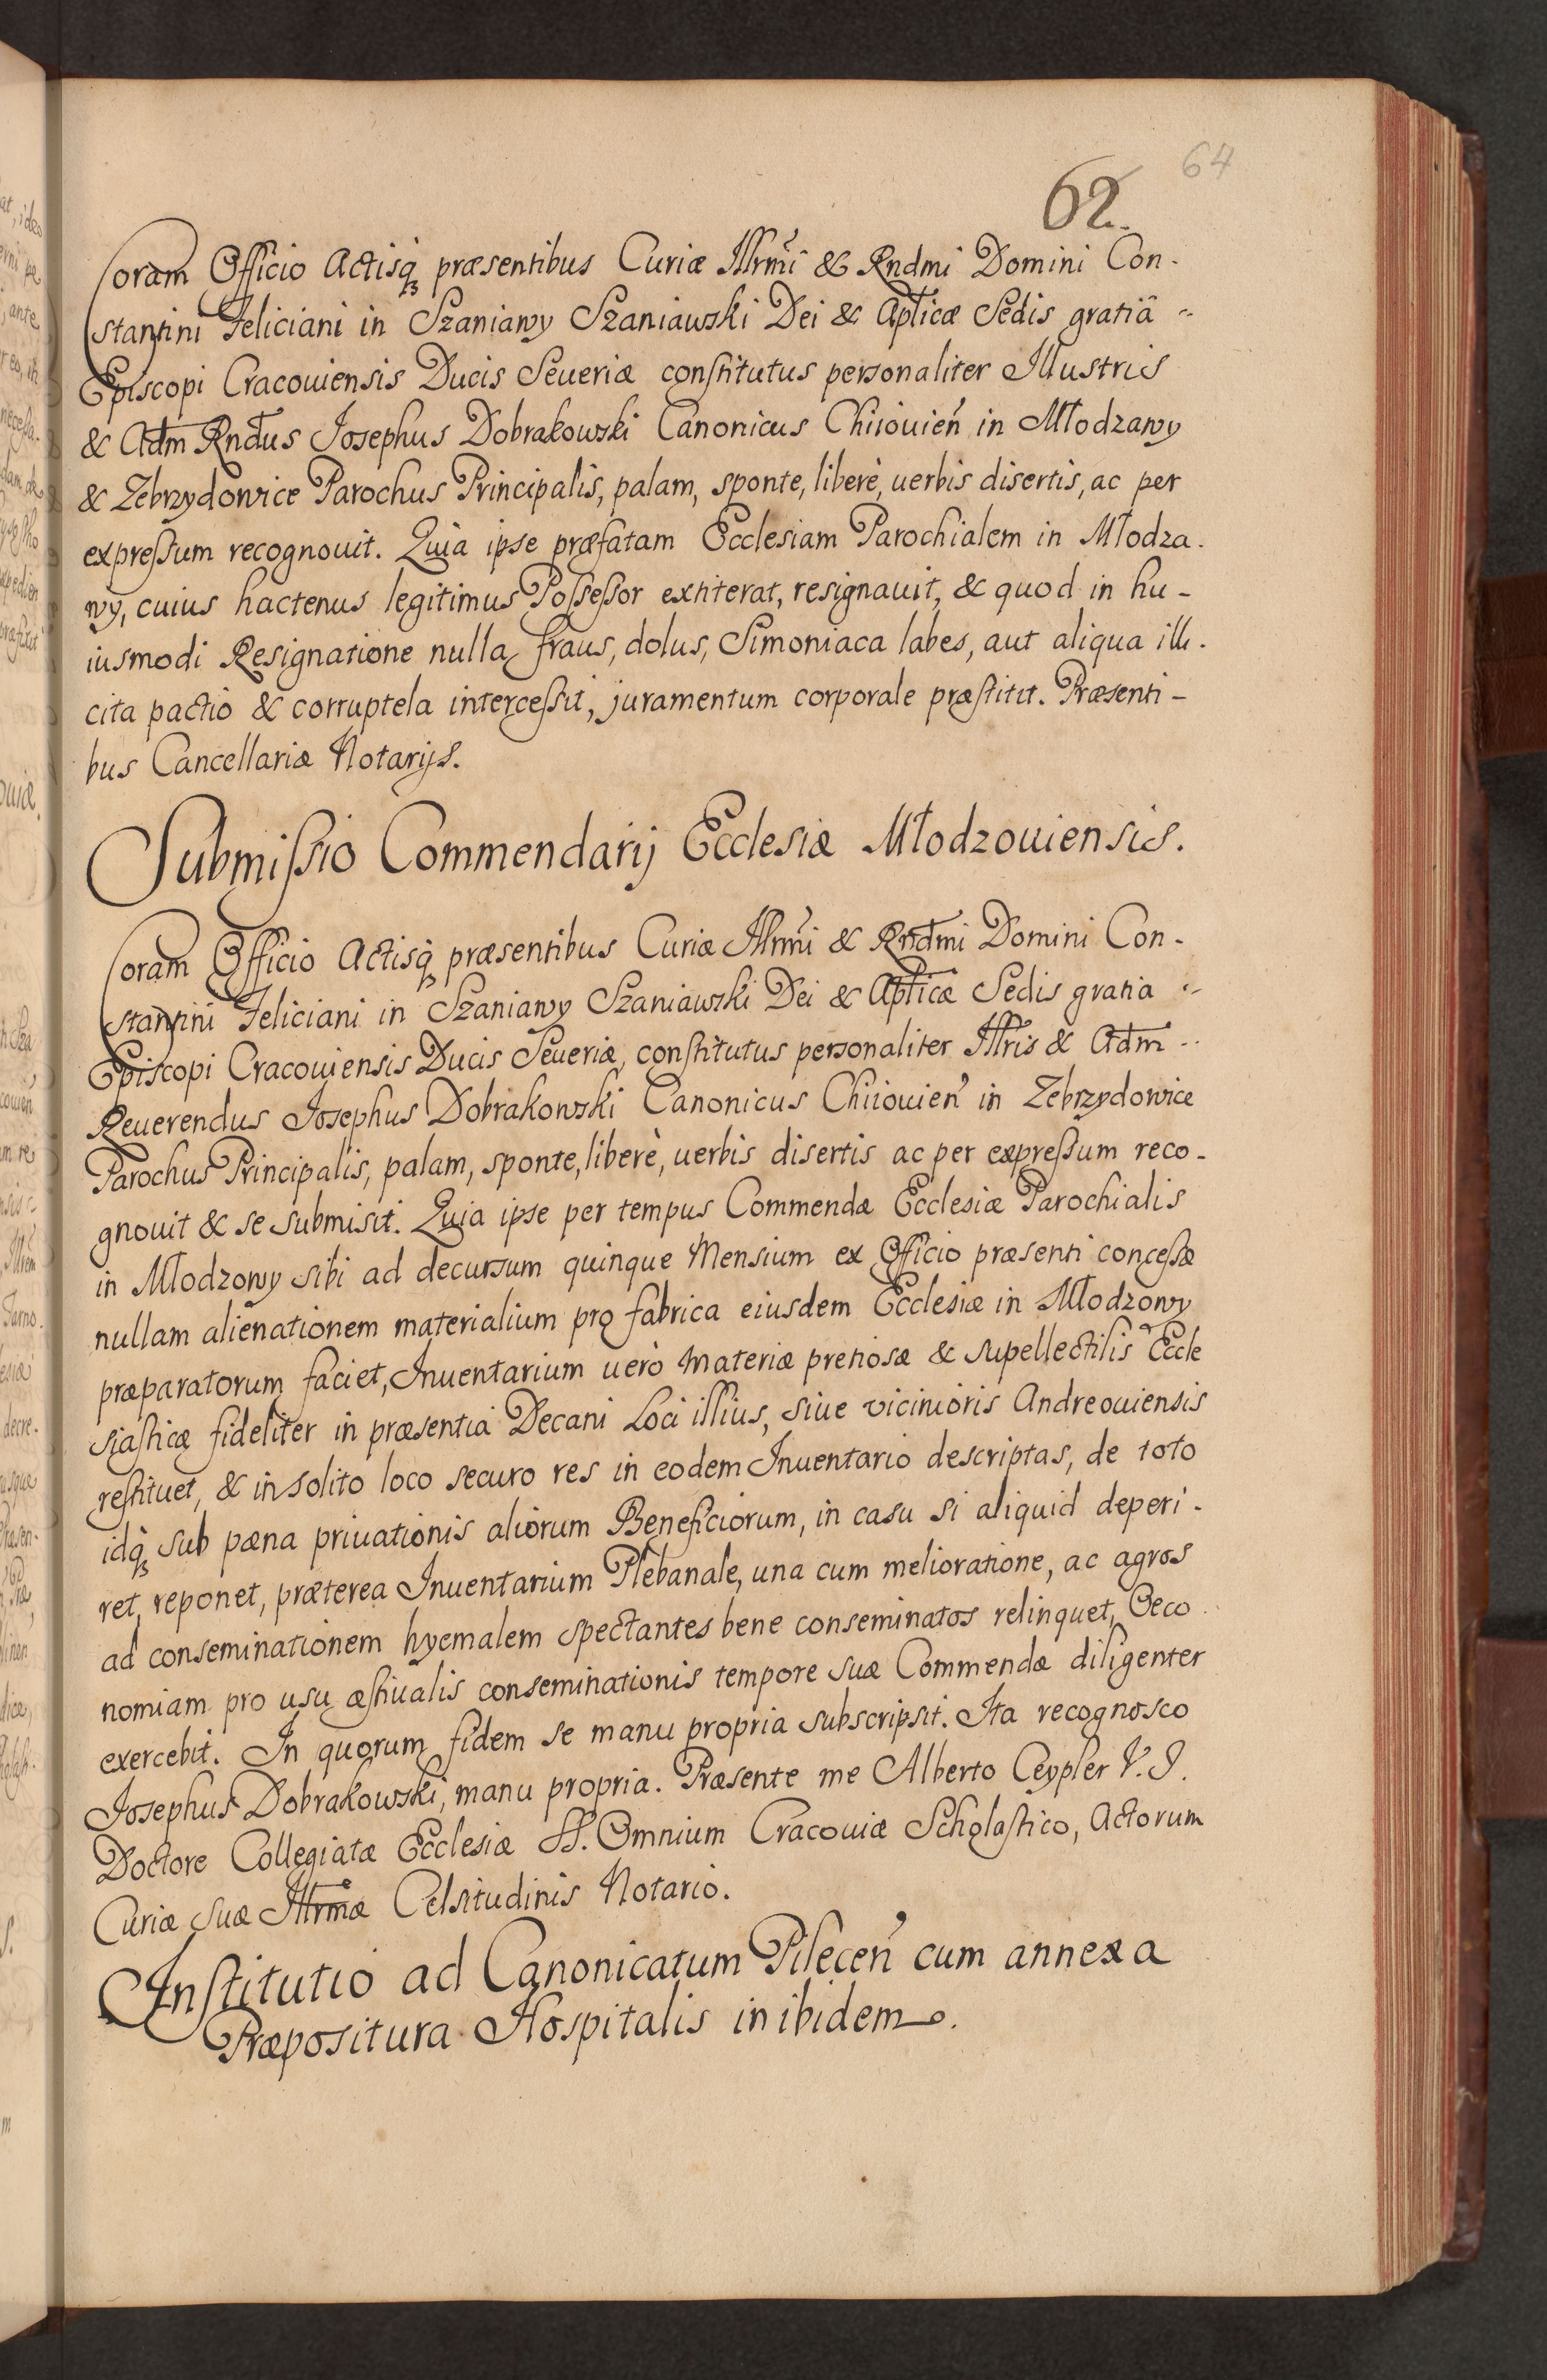 64
62.
Coram Officio Actisq̃ præsentibus Curiæ Illrm̃i & Rndmi Domini Con-
stantini Feliciani in Szaniawy Szaniawski Dei & Aplicæ Sedis gratiâ
Episcopi Cracouiensis Ducis Seueriæ constitutus personaliter Illustris
& Adm Rndus Josephus Dobrakowski Canonicus Chiiouień in Młodzawy
& Zebrzydowice Parochus Principalis, palam, sponte, liberè, uerbis disertis, ac per
expressum recognouit. Quia ipse præfatam Ecclesiam Parochialem in Młodza-
wy, cuius hactenus legitimus Possessor extiterat, resignauit, & quod in hu-
iusmodi Resignatione nulla fraus, dolus, Simoniaca labes, aut aliqua illi-
cita pactio & corruptela intercessit, juramentum corporale præstitit. Præsenti-
bus Cancellariæ Notarijs.
Submissio Commendarij Ecclesiæ Młodzouiensis.
Coram Officio Actisq̃ præsentibus Curiæ Illrm̃i & Rndmi Domini Con-
stantini Feliciani in Szaniawy Szaniawski Dei & Aplicæ Sedis gratia
Episcopi Cracouiensis Ducis Seueriæ, constitutus personaliter Illris & Adm
Reuerendus Josephus Dobrakowski Canonicus Chiiouień in Zebrzydowice
Parochus Principalis, palam, sponte, liberè, uerbis disertis ac per expressum reco-
gnouit & se submisit. Quia ipse per tempus Commendæ Ecclesiæ Parochialis
in Młodzowy sibi ad decursum quinque Mensium ex Officio præsenti concessæ
nullam alienationem materialium pro fabrica eiusdem Ecclesiæ in Młodzowy
præparatorum faciet, Inuentarium uerò materiæ pretiosæ & supellectilis Eccle
siasticæ fideliter in præsentia Decani Loci illius, siue vicinioris Andreouiensis
restituet, & in solito loco securo res in eodem Inuentario descriptas, de toto
idq̃ sub pæna priuationis aliorum Beneficiorum, in casu si aliquid deperi-
ret, reponet, præterea Inuentarium Plebanale, una cum melioratione, ac agros
ad conseminationem hyemalem spectantes bene conseminatos relinquet, Oeco
nomiam pro usu æstiualis conseminationis tempore suæ Commendæ diligenter
exercebit. In quorum fidem se manu propria subscripsit. Ita recognosco
Josephus Dobrakowski, manu propria. Præsente me Alberto Ceypler V. J.
Doctore Collegiatæ Ecclesiæ SS. Omnium Cracouiæ Scholastico, Actorum
Curiæ suæ Illrmæ Celsitudinis Notario.
Institutio ad Canonicatum Pileceń cum annexa
Præpositura Hospitalis in ibidem.